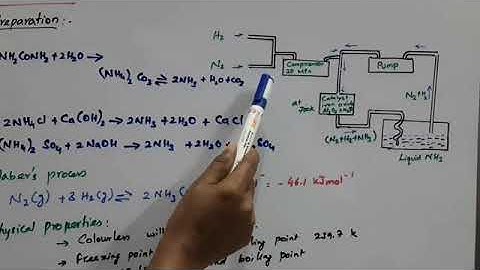 Preparation:-
NH2CONH2 + 2H2O →
(NH4)2 CO3 ⇌ 2NH3 + H2O + CO2
2NH4Cl + Ca(OH)2 → 2NH3 + 2H2O + CaCl
(NH4)2 SO4 + 2NaOH → 2NH3 + 2H2O + SO4
Haber's process
N2(g) + 3H2(g) ⇌ 2NH3 = -46.1 kJ mol-1
Physical properties:
→ Colourless point 239.7 k
→ freezing point boiling point
H2
N2
Compressor
Pump
Catalyst
at
N2+H2
(N2+H2+NH3)
Liquid NH3